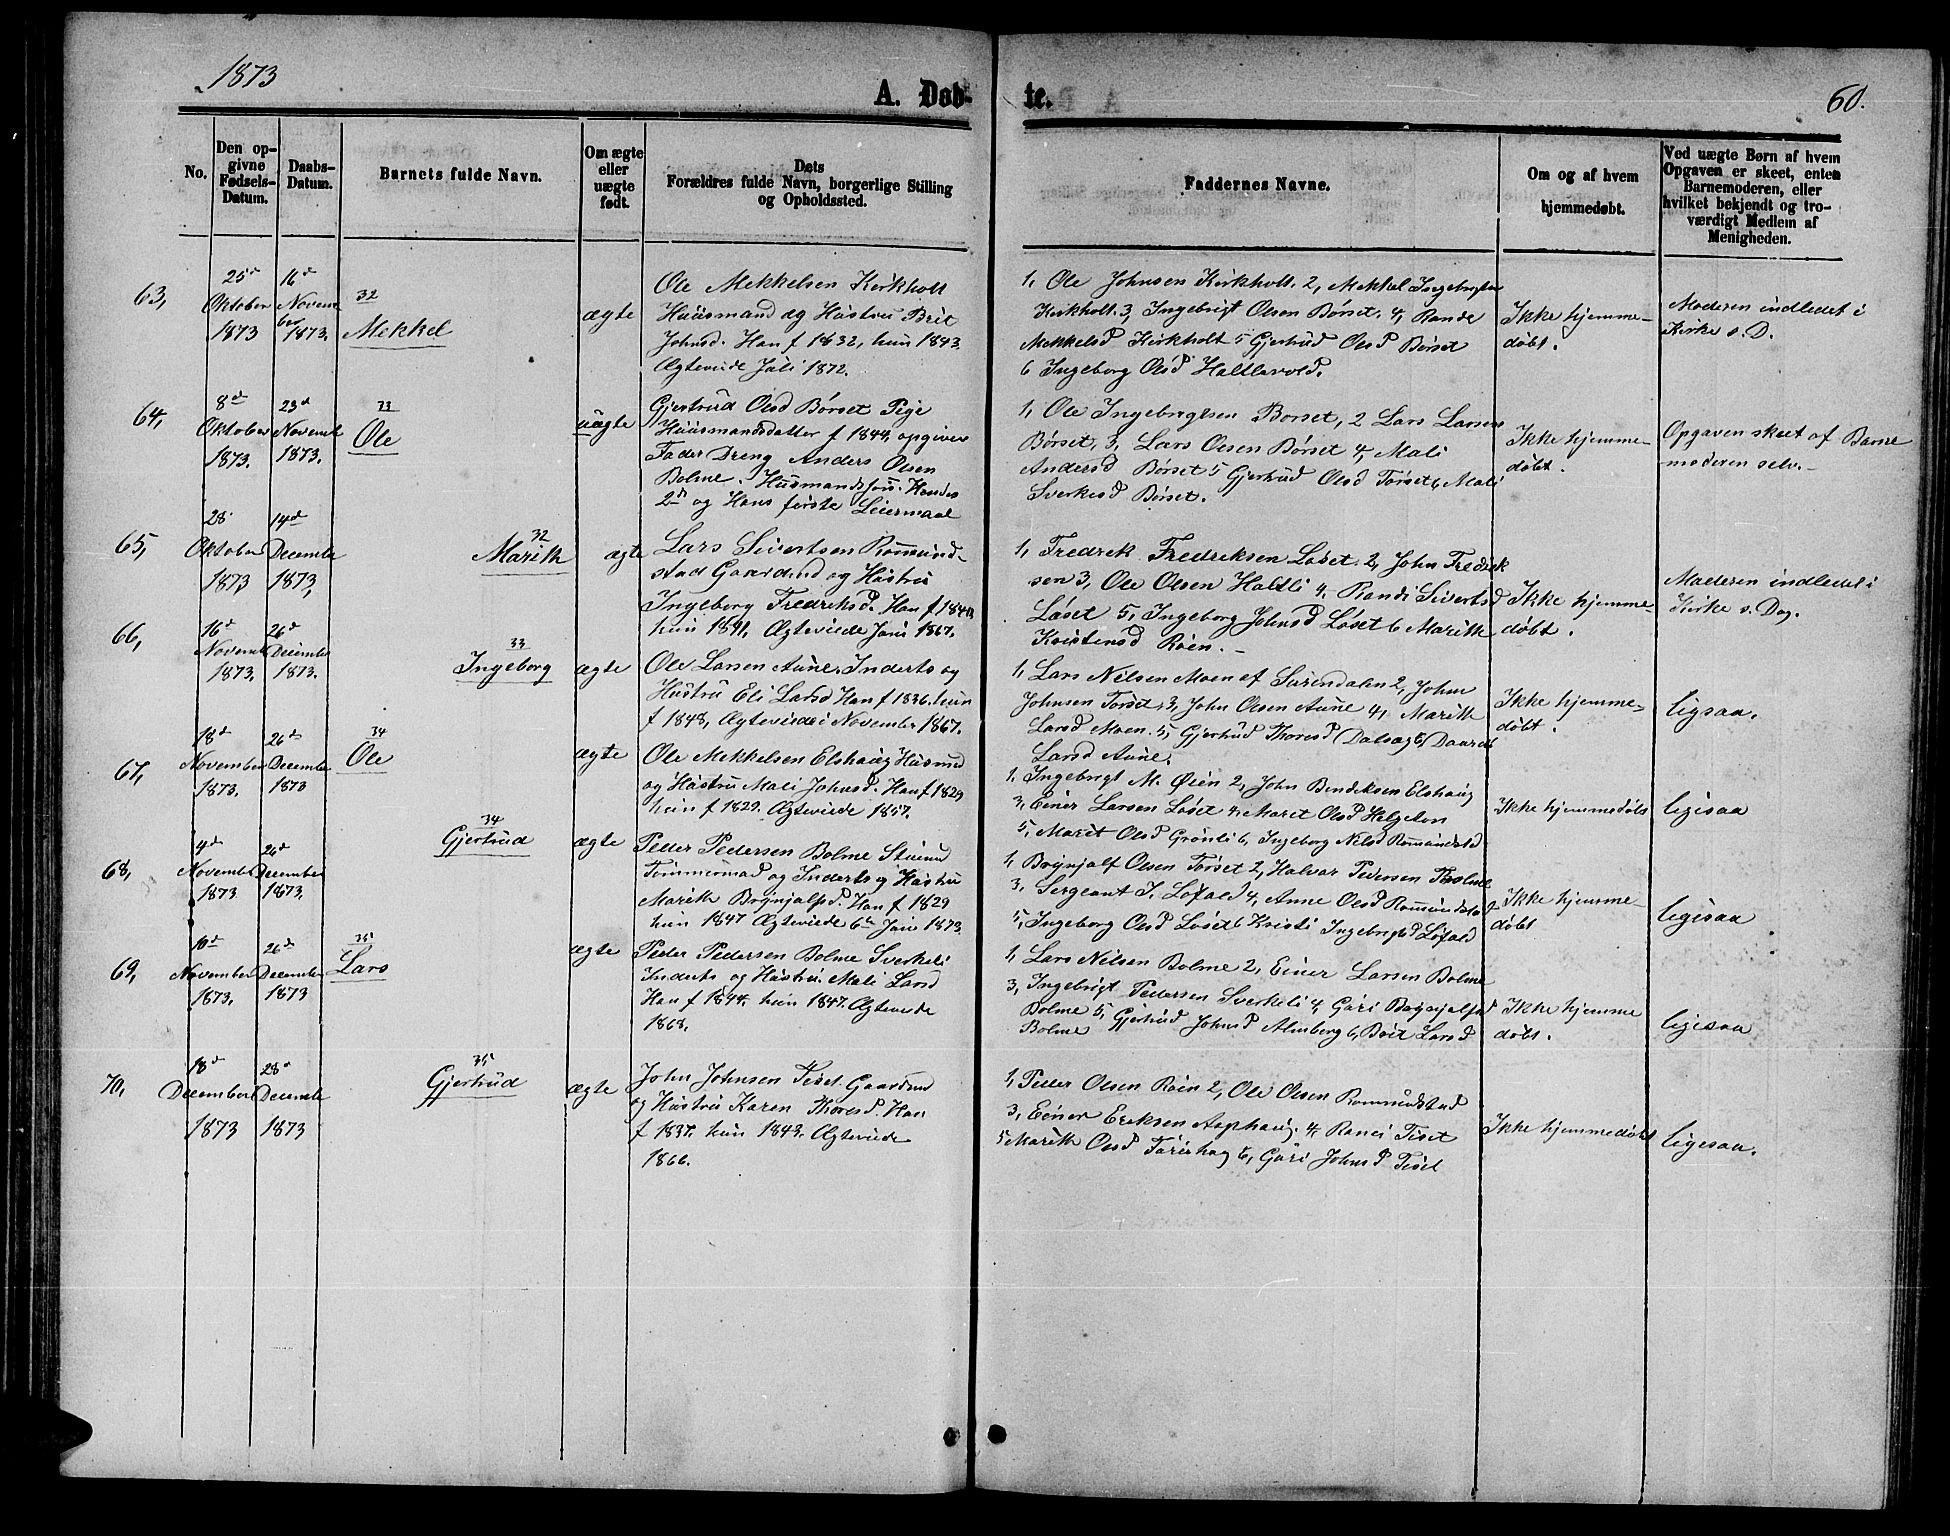 1873
A. Døb-
te.
60.
No.
Den op-
givne
Fødsels-
Datum.
Daabs-
Datum.
Barnets fulde Navn.
Om ægte
eller
uægte
født.
Dets
Forældres fulde Navn, borgerlige Stilling
og Opholdssted.
Faddernes Navne.
Om og af hvem
hjemmedøbt.
Ved uægte Børn af hvem
Opgaven er skeet, enten
Barnemoderen, eller
hvilket bekjendt og tro-
værdigt Medlem af
Menigheden.
63,
25d
Oktober
1873
16d
Novem
ber
1873.
32
Mekkel
ægte
Ole Mekkelsen Kirkholt
Huusmand og Hustru Brit
Johnsd. Han f 1832, hun 1843.
Ægteviede Juli 1872.
1, Ole Johnsen Kirkholt. 2, Mekkel Ingebrigtsen
Kirkholt. 3, Ingebrigt Olsen Børset. 4, Rande
Mekkelsd Kirkholt 5 Gjertrud Olsd Børset
6 Ingeborg Olsd Haltlavold.
Ikke hjemme-
døbt.
Moderen indledet i
Kirke s. D.
64,
8de
Oktober
1873.
23d
Novemb
1873.
33
Ole
uægte
Gjertrud Olsd Børset Pige
Huusmandsdatter f 1844, opgiver
Fader Dreng Anders Olsen
Bolme. Husmandssøn. Hendes
2d og Hans første Leiermaal
1, Ole Ingebrigtsen Børset, 2 Lars Larsen
Børset, 3, Lars Olsen Børset 4, Mali
Andersd Børset 5 Gjertrud Olsd Torset 6, Mali
Sverkesd Børset.
Ikke hjemme-
døbt.
Opgaven skeet af Barne
moderen selv.-
65,
28
Oktober
1873
14d
December
1873,
32
Marith
ægte
Lars Sivertsen Romund-
stad Gaardmd og Hustru
Ingeborg Fredriksd. Han f. 1840
hun 1841, Ægteviede Juni 1867.
1, Fredrek Fredriksen Løset. 2, John Fredrik
sen 3, Ole Olsen Haltli 4, Randi Sivertsd
Løset 5, Ingeborg Johnsd Løset 6 Marith
Kristensd Røen.-
Ikke hjemme
døbt.
Moderen indledet i
Kirke s. Dag.
66,
16d
Novemb
1873.
26d
December
1873.
33
Ingeborg
ægte
Ole Larsen Aune. Inderts og
Hustru Eli Larsd Han f 1836. hun
f 1848, Ægteviede i November 1867.
1, Lars Nilsen Moen af Surendalen 2, John
Johnsen Torset, 3, John Olsen Aune 4, Marith
Larsd Moen. 5, Gjertrud Thoresd (Dalsæg 6, Daaret
Larsd Aune.
Ikke hjemme-
døbt.
ligsaa.
67,
18d
November
1873.
26de
December
1873
34
Ole
ægte
Ole Mekkelsen Elshaug Husmd
og Hustru Mali Johnsd. Han f 1829
hun f 1829. Ægteviede 1857.
1, Ingebrigt M. Øien 2, John Bendiksen Elshaug
3, Einer Larsen Løset 4, Maret Olsd Helgeton
5, Marit Olsd Grønli 6, Ingeborg Nilsd Romundstd
Ikke hjemmedøbt
ligesaa
68,
4d
Novembr
1873.
26d
December
1873.
34
Gjertrud
ægte
Peder Pedersen Bolme
Tømmermad og Inderts og Hustru
Marith Brynjulfsd. Han f 1829
hun 1847 Ægteviede 6te Juni 1873.
1, Brynjulf Olsen Torset 2, Halvar Pedersen Bolme
3, Sergeant I. Løfald 4, Anne Olsd Romundstad
5, Ingeborg Olsd Løset 6 Kristi Ingebrigtsd Løfald
Ikke hjemme-
døbt
ligesaa
69,
10d
November
1873.
26de
December
1873
35
Lars
ægte
Peder Pedersen Bolme Sverkeli
Inderts og Hustru. Mali Larsd
Han f 1844. hun 1847. Ægteviede
1868.
1, Lars Nilsen Bolme 2, Einer Larsen Bolme
3, Ingebrigt Pedersen Sverkeli 4, Guri Brynjulfsd
Bolme 5, Gjertrud Johnsd Almberg 6, Brit Larsd
Bolme
Ikke hjemme
døbt.
ligesaa
70,
18d
December
1873
28d
Decembe
1873
35
Gjertrud
ægte
John Johnsen Tiset Gaardmd
og Hustru Karen Thoresd. Han
f 1837. hun 1843. Ægteviede
1866.
1, Peder Olsen Røen 2, Ole Olsen Romundstad
3, Einer Eriksen Asphaug. 4, Ranei Tiset
5 Marith Olsd 6, Guri Johnsd Tiset
Ikke hjemmedøbt
ligesaa.